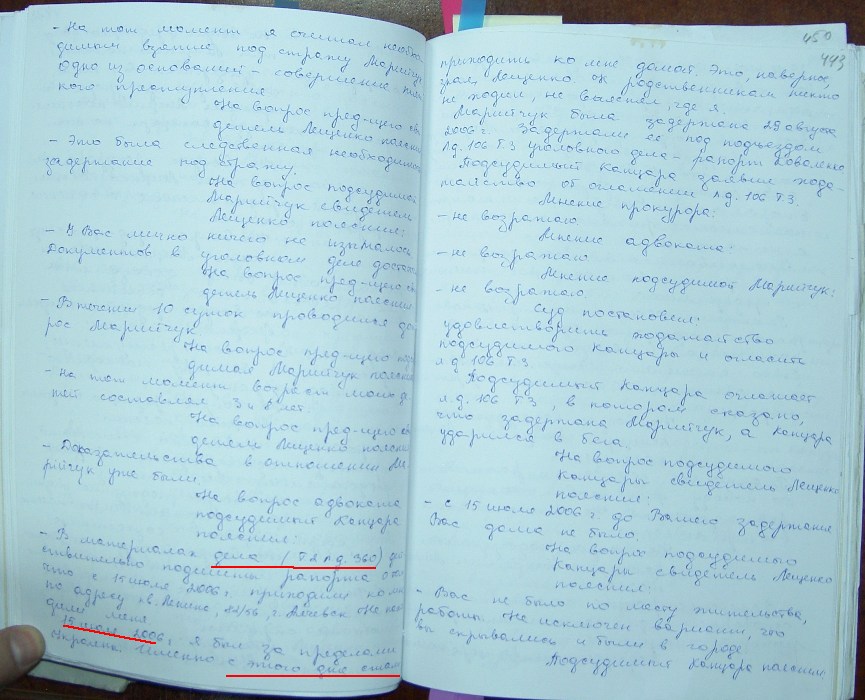 - На тот момент я считал необхо-
димым взятие под стражу Марийчук
одно из оснований - совершение тяж-
кого преступления
На вопрос пред-щего сви-
детель Лещенко пояснил
- Это была следственная необходимость
задержание под стражу.
На вопрос подсудимой
Марийчук свидетель
Лещенко пояснил:
- У Вас лично ничего не изымалось
Документов в уголовном деле достаточно
На вопрос пред-щего сви-
детель Лещенко пояснил
- В течении 10 суток проводился доп-
рос Марийчук
На вопрос пред-щего подсу-
димая Марийчук пояснила
- на тот момент возраст моих де-
тей составлял 3 и лет.
На вопрос пред-щего сви-
детель Лещенко пояснил
- Доказательства в отношении Ма-
рийчук уже были
На вопрос адвоката
подсудимый Канцара
пояснил:
- В материалах дела (Т л.д. 360) дей-
ствительно подшиты рапорта о том
что с 15 июля 2006 г. приходили ко мне
по адресу кв. Ленина, г. Алчевск
меня
15 июля 2006 г. я был за пределами
Украины Именно с этого дня стали
450
443
приходить ко мне домой. Это, наверное,
знал Лещенко К родственникам никто
не ходил, не выяснял, где я.
Марийчук была задержана 29 августа
2006 г. Задержали её под подъездом
л.д. 106 Т3 уголовного дела - рапорт Коваленко
Подсудимый Канцара заявил хода-
тайство об оглашении л.д. 106 Т3
Мнение прокурора:
- не возражаю
Мнение адвоката:
- не возражаю
Мнение подсудимой Марийчук:
- не возражаю
Суд постановил:
удовлетворить ходатайство
подсудимого Канцары и огласить
л.д. 106 Т3
Подсудимый Канцара оглашает
л.д. 106 Т3, в котором сказано,
что задержана Марийчук, а Канцара
ударился в бега.
На вопрос подсудимого
Канцары свидетель Лещенко
пояснил:
- с 15 июля 2006 г. до Вашего задержания
Вас дома не было.
На вопрос подсудимого
Канцары свидетель Лещенко
пояснил:
- Вас не было по месту жительства,
работы. Не исключен вариант, что
вы скрывались и были в городе
Подсудимый Канцара пояснил